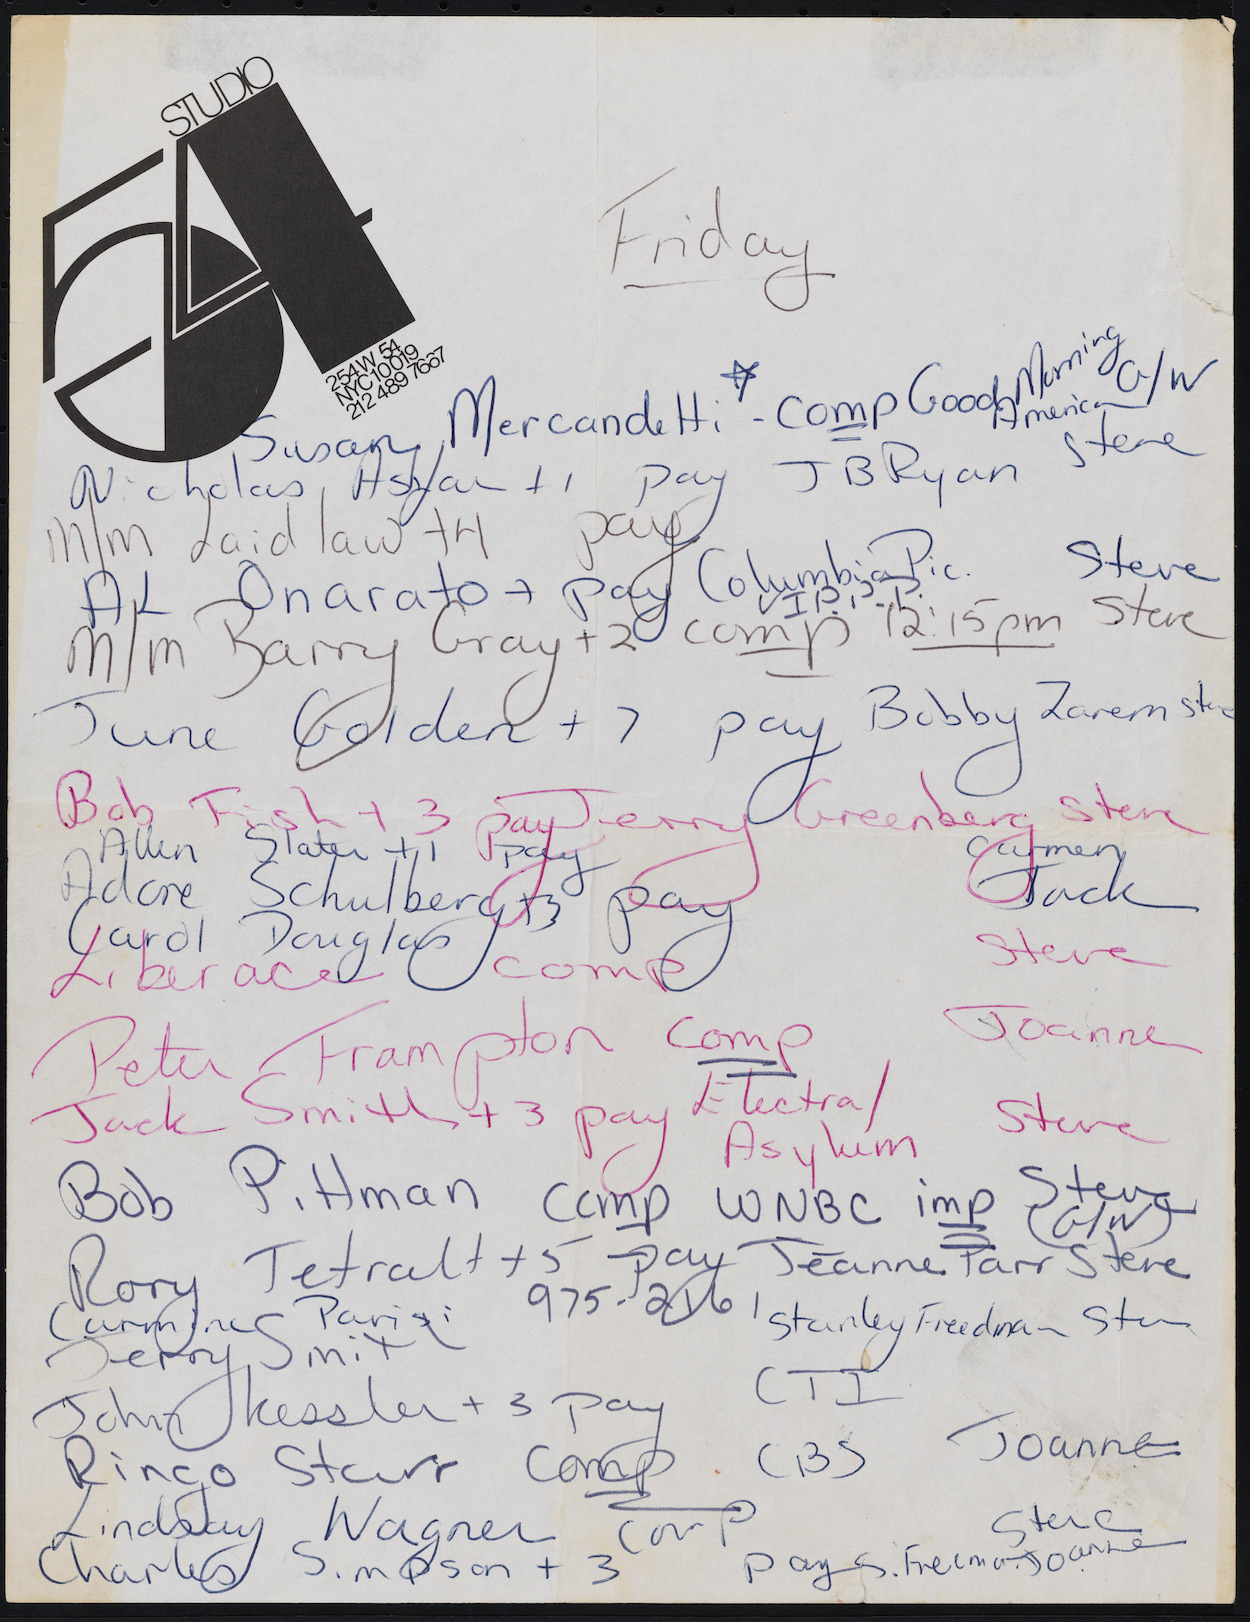 STUDIO
54
254 W 54
NYC 10019
212 489 7667
Friday
Susan Mercandetti* - comp Good Morning America G/W
Nicholas +1 pay J B Ryan Steve
M/m Laidlaw +4 pay
AL Onarato + pay Columbia Pic. Steve
V.I.P.
M/m Barry Gray +2 comp 12:15pm Steve
June Golden +7 pay Bobby Zarem Steve
Bob Fish +3 pay Jerry Greenberg Steve
Allen Slater +1 pay Carmen
Adore Schulberg +3 pay Jack
Carol Douglas
Liberace comp Steve
Peter Frampton comp Joanne
Jack Smith +3 pay Electra/ Asylum Steve
Bob Pittman comp WNBC imp Steve (G/W)
Rory Tetralt +5 pay Jeanne Parr Steve
975-2161
Carmine Parisi Stanley Freedman Steve
Jerry Smith
John Kessler +3 pay CTI
Ringo Starr comp CBS Joanne
Lindsay Wagner comp Steve
Charles Simpson +3 pay S. Freeman Joanne